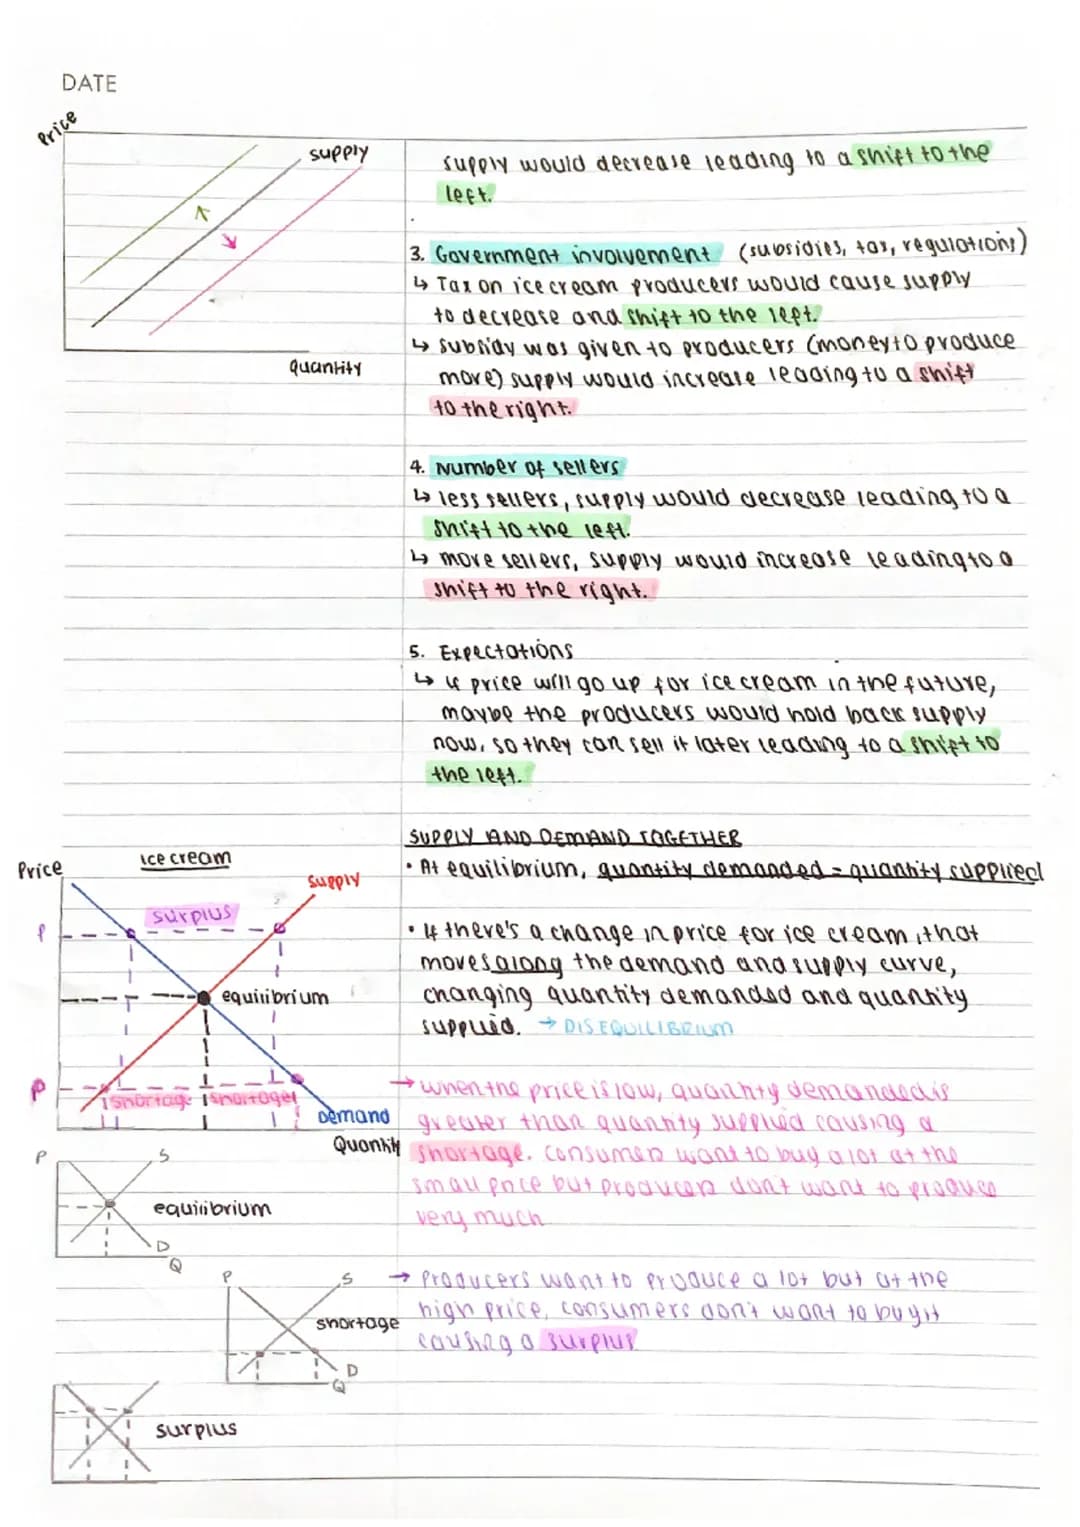 DATE
Price
supply
quantity
supply would decrease leading to a shift to the
left.
3. Government involvement (subsidies, tax, regulations)
↳ Tax on ice cream producers would cause supply
to decrease and shift to the left.
↳ subsidy was given to producers (money to produce
more) supply would increase leading to a shift
to the right.
4. Number of sellers
↳ less sellers, supply would decrease leading to a
shift to the left.
↳ more sellers, supply would increase leading to a
shift to the right.
5. Expectations
↳ if price will go up for ice cream in the future,
maybe the producers would hold back supply
now, so they can sell it later leading to a shift to
the left.
SUPPLY AND DEMAND TOGETHER
• At equilibrium, quantity demanded = quantity supplied
• If there's a change in price for ice cream, that
moves along the demand and supply curve,
changing quantity demanded and quantity
supplied. → DISEQUILIBRIUM
→ when the price is low, quantity demanded is
greater than quantity supplied causing a
shortage. Consumers want to buy a lot at the
small price but producers don't want to produce
very much
→ Producers want to produce a lot but at the
high price, consumers don't want to buy it
causing a surplus
Price
Ice cream
supply
surplus
P
equilibrium
P
shortage shortage
Demand
Quantity
P
S
equilibrium
D
Q
P
S
shortage
D
Q
surplus